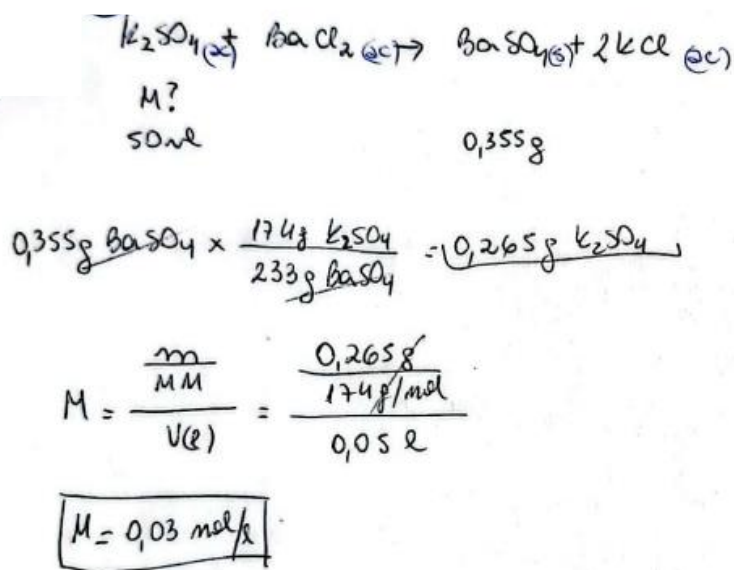 K₂SO₄(ac) + BaCl₂(ac) → BaSO₄(s) + 2KCl (ac)
M?
50ml 0,355g
0,355g BaSO₄ × 174g K₂SO₄ / 233g BaSO₄ = 0,265g K₂SO₄
M = (m / MM) / V(l) = (0,265g / 174g/mol) / 0,05 l
M = 0,03 mol/l